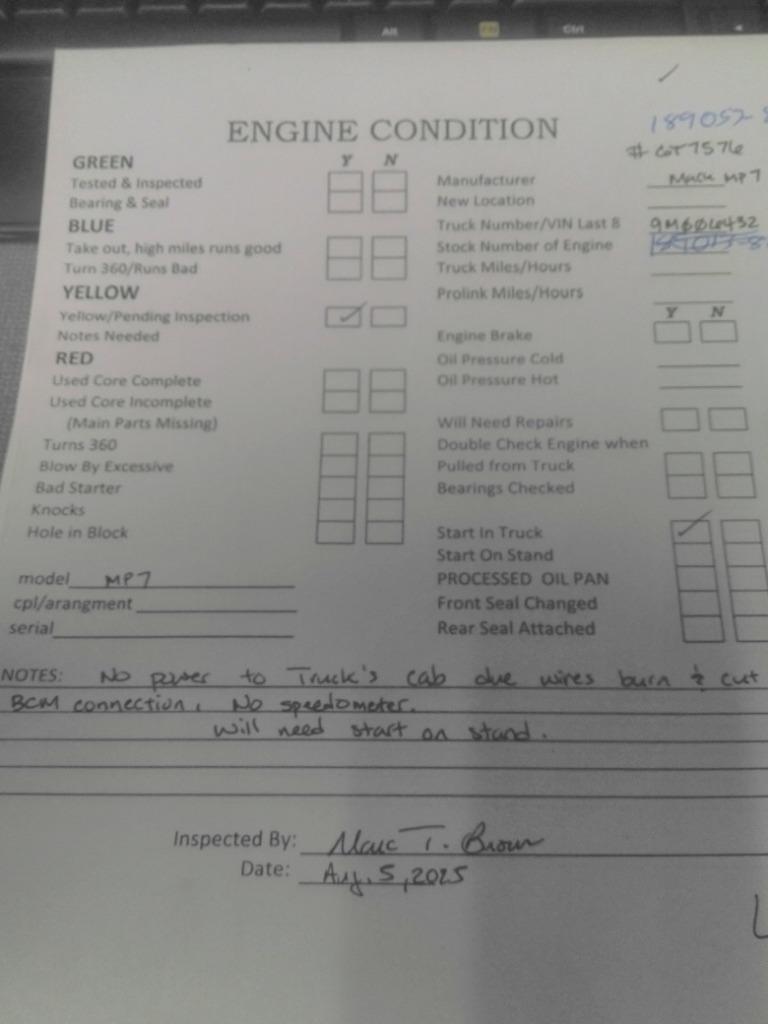 Alt
Ctrl
ENGINE CONDITION
189052
# COT7576
GREEN Y N
Tested & Inspected
Bearing & Seal
BLUE
Take out, high miles runs good
Turn 360/Runs Bad
YELLOW
Yellow/Pending Inspection
Notes Needed
RED
Used Core Complete
Used Core Incomplete
(Main Parts Missing)
Turns 360
Blow By Excessive
Bad Starter
Knocks
Hole in Block
model MP7
cpl/arangment
serial
Manufacturer Mack MP7
New Location
Truck Number/VIN Last 8
Stock Number of Engine
Truck Miles/Hours
Prolink Miles/Hours
Y N
Engine Brake
Oil Pressure Cold
Oil Pressure Hot
Will Need Repairs
Double Check Engine when
Pulled from Truck
Bearings Checked
Start In Truck
Start On Stand
PROCESSED OIL PAN
Front Seal Changed
Rear Seal Attached
NOTES: No power to Truck's cab due wires burn & cut
BCM connection. No speedometer.
Will need start on stand.
Inspected By: Marc T. Brown
Date: Aug. 5, 2025